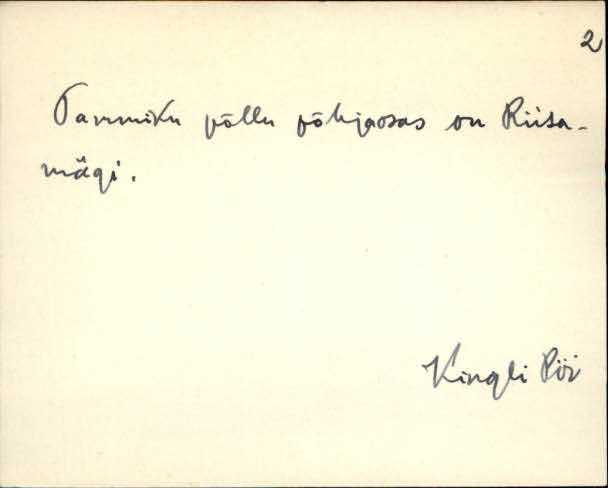 2
Tammiku põllu põhjaosas on Riisa-
mägi.
Kingli Pöi